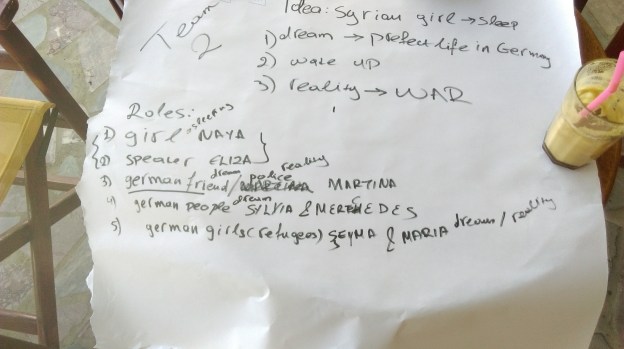 Team 2
Idea: Syrian girl → sleep
1) dream → prefect life in Germany
2) wake up
3) reality → WAR
Roles:
1) girl sleeping NAYA
2) speaker ELIZA
3) german friend/ dream police reality MARTINA
4) german people dream SYLVIA & MERTHEDES
5) german girls (refugees) SEYMA & MARIA dream / reality